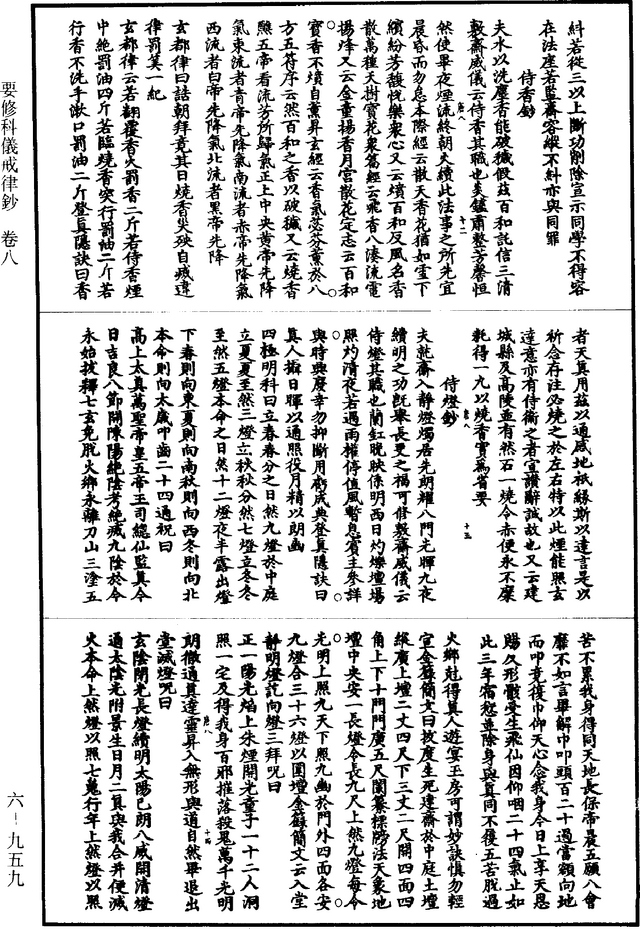 糾若從三以上斷功削除宣示同學不得容
在法座若監齋容縱不糾亦與同罪
侍香鈔
夫水以洗塵香能破穢假茲百和託信三清
敷齋威儀云侍香其職也炎鑪肅整芳馨恒
然使畢夜煙流終朝火續此法事之所先宜
晨昏而勿息本際經云散天香花猶如雲下
繽紛芳馥悅樂衆心又云燌百和反風名香
散萬種天樹寶花衆篇經云飛香八湊流電
揚烽又云金童揚香月宮散花定志云百和
寶香不燌自薰昇玄經云香氣苾芬薰於八
方五符序云然百和之香以破穢又云燒香
照五帝看流芳所歸氣正上中央黃帝先降
氣東流者青帝先降氣南流者赤帝先降氣
西流者白帝先降氣北流者黑帝先降
玄都律曰詰朝拜竟其日燒香災殃自滅違
律罰筭一紀
玄都律云若翻覆香火罰香二斤若侍香煙
中絶罰油四斤若臨燒香突行罰油二斤若
行香不洗手漱口罰油二斤登真隱訣曰香
者天真用茲以通感地祇緣斯以達言是以
祈念存注必燒之於左右特以此煙能照玄
達意亦有侍衞之者宣讚辭誠故也又云建
城縣及高陵並有然石一燒令赤便永不糜
耗得一九以燒香實爲省要
侍燈鈔
夫就齋入靜燈燭居先朗耀八門光暉九夜
續明之功旣舉長更之福可脩敷齋威儀云
侍燈其職也蘭釭晚映係明西日灼爍壇場
照灼清夜若遇雨權停值風暫息賓主參詳
與時興廢幸勿抑斷用虧成典登真隱訣曰
真人攝日暉以通照役月精以朗幽
四極明科曰立春春分之日然九燈於中庭
立夏夏至然三燈立秋秋分然七燈立冬冬
至然五燈本命之日然十二燈夜半露出燈
下春則向東夏則向南秋則向西冬則向北
本命則向太歲叩齒二十四通祝曰
高上太真萬聖帝皇五帝玉司總仙監真今
日吉良八節開陳陽絶陰考絶滅九陰於今
永始拔釋七玄免脫火鄉永離刀山三塗五
苦不累我身得同天地長保帝晨五願八會
靡不如言畢解巾叩頭百二十過當額向地
而叩竟復巾仰天心念我身今日上享天恩
賜久形骸受生飛仙因仰咽二十四氣止如
此三年宿愆並除身與真同不復五苦脫過
火鄉尅得真人遊宴玉房可謂妙訣慎勿輕
宣金籙簡文曰拔度生死建齋於中庭土壇
縱廣上壇二丈四尺下三丈二尺開四面四
角上下十門門廣五尺闌纂標牓法天象地
壇中央安一長燈令長九尺上然九燈每令
光明上照九天下照九幽於門外四面各安
九燈合三十六燈以圍壇金籙簡文云入堂
靜明燈訖向燈三拜咒曰
正一陽光焰上朱煙開光童子一十二人洞
照一宅及得我身百邪摧落殺鬼萬千光明
朗徹通真達靈昇入無形與道自然畢退出
堂滅燈咒曰
玄陰閉光長燈續明太陽已朗八威開清燈
通太陰光附景生日月二真與我合并便滅
火本命上然燈以照七鬼行年上然燈以照
要修科儀戒律鈔　卷八
六－九五九